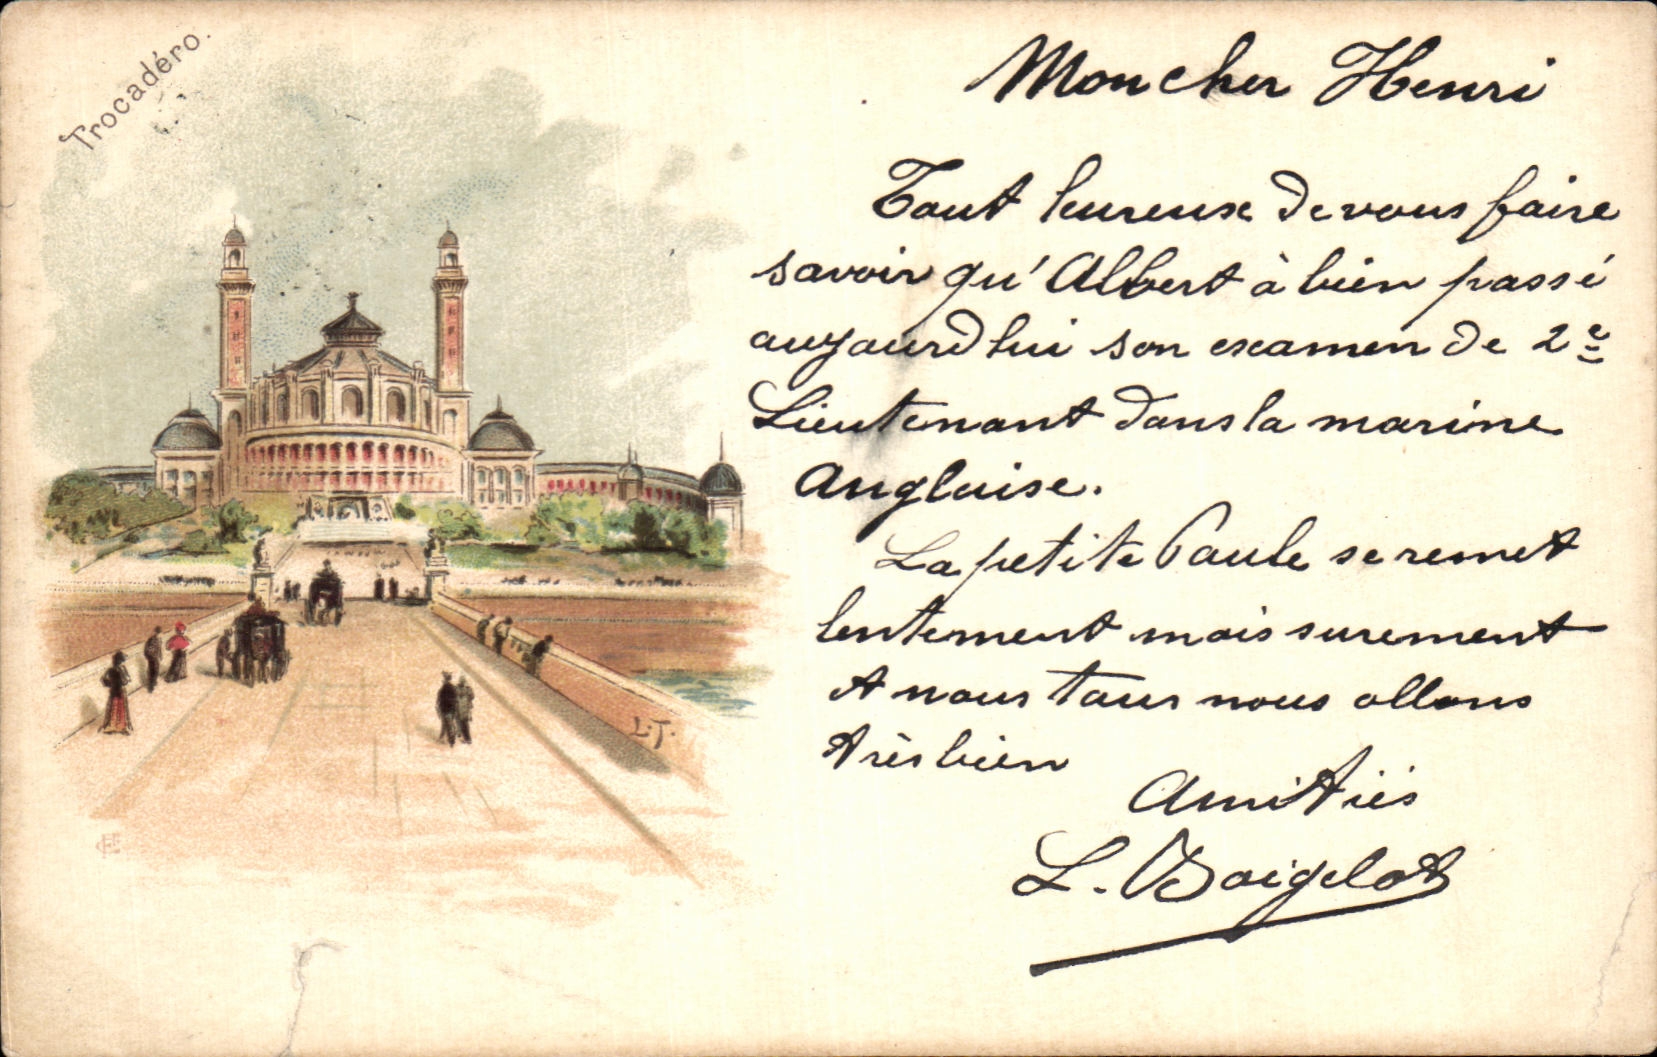 Trocadéro.
Mon cher Henri
Tout heureux de vous faire
savoir qu'Albert à bien passé
aujourd hui son examen de 2e
Lieutenant dans la marine
Anglaise.
La petite Paule se remet
lentement mais surement
A nous tous nous allons
très bien
Amitiés
L. Boigelot
L.T.